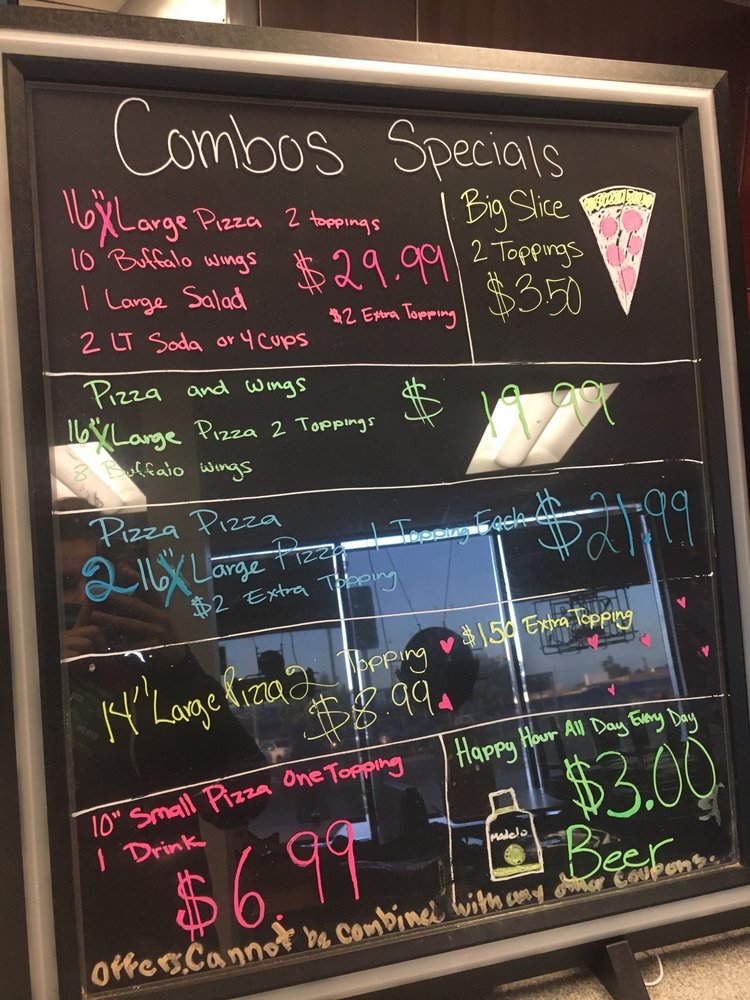 Combos Specials
16" XLarge Pizza 2 toppings
10 Buffalo wings
$29.99
1 Large Salad
$2 Extra Topping
2 LT Soda or 4 cups
Big Slice
2 Toppings
$3.50
Pizza and wings
$19.99
16" XLarge Pizza 2 Toppings
8 Buffalo wings
Pizza Pizza
2 16" XLarge Pizza 1 Topping Each $21.99
$2 Extra Topping
14" Large Pizza 2 Topping
$8.99
$1.50 Extra Topping
10" Small Pizza One Topping
1 Drink
$6.99
Happy Hour All Day Every Day
$3.00
Modelo
Beer
Offers Cannot be Combined with any other Coupons.